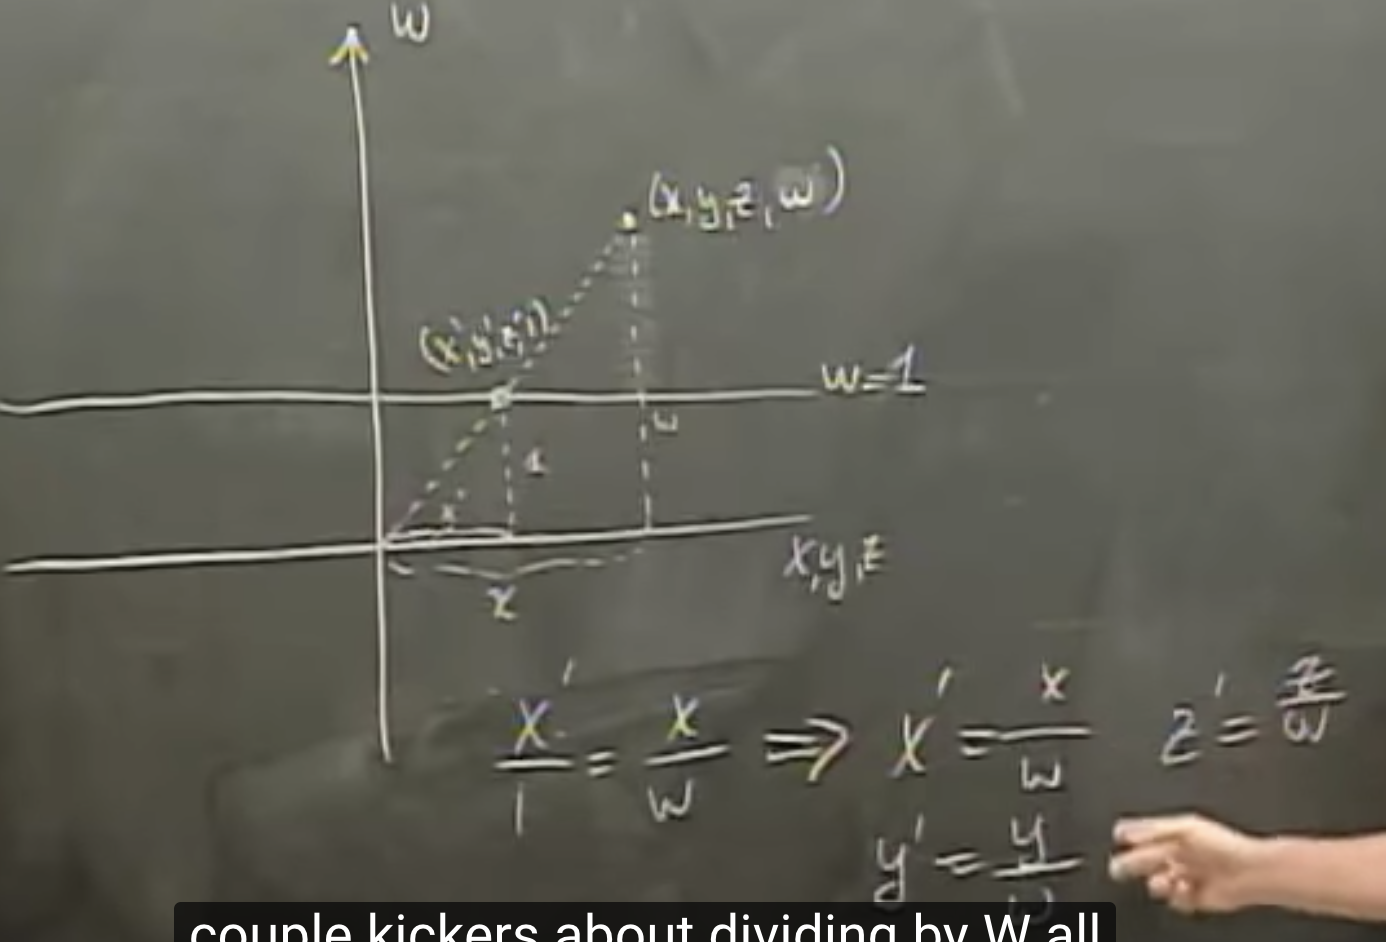 w
(x,y,z,w)
(x',y',z',1)
w=1
w
1
x'
x,y,z
x
x'/1 = x/w ⇒ x' = x/w z' = z/w
y' = y/w
couple kickers about dividing by W all